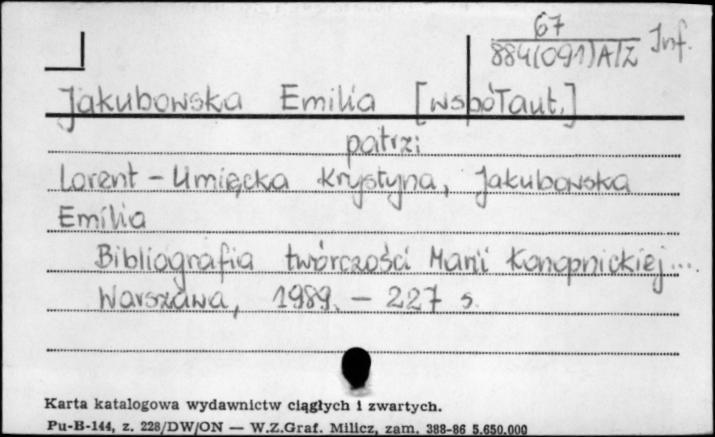 67
884(091)A/Z Inf.
Jakubowska Emilia [współaut.]
patrz:
Lorent-Umięcka Krystyna, Jakubowska
Emilia
Bibliografia twórczości Marii Konopnickiej...
Warszawa, 1989. - 227 s.
Karta katalogowa wydawnictw ciągłych i zwartych.
Pu-B-144, z. 228/DW/ON — W.Z.Graf. Milicz, zam. 388-86 5.650.000